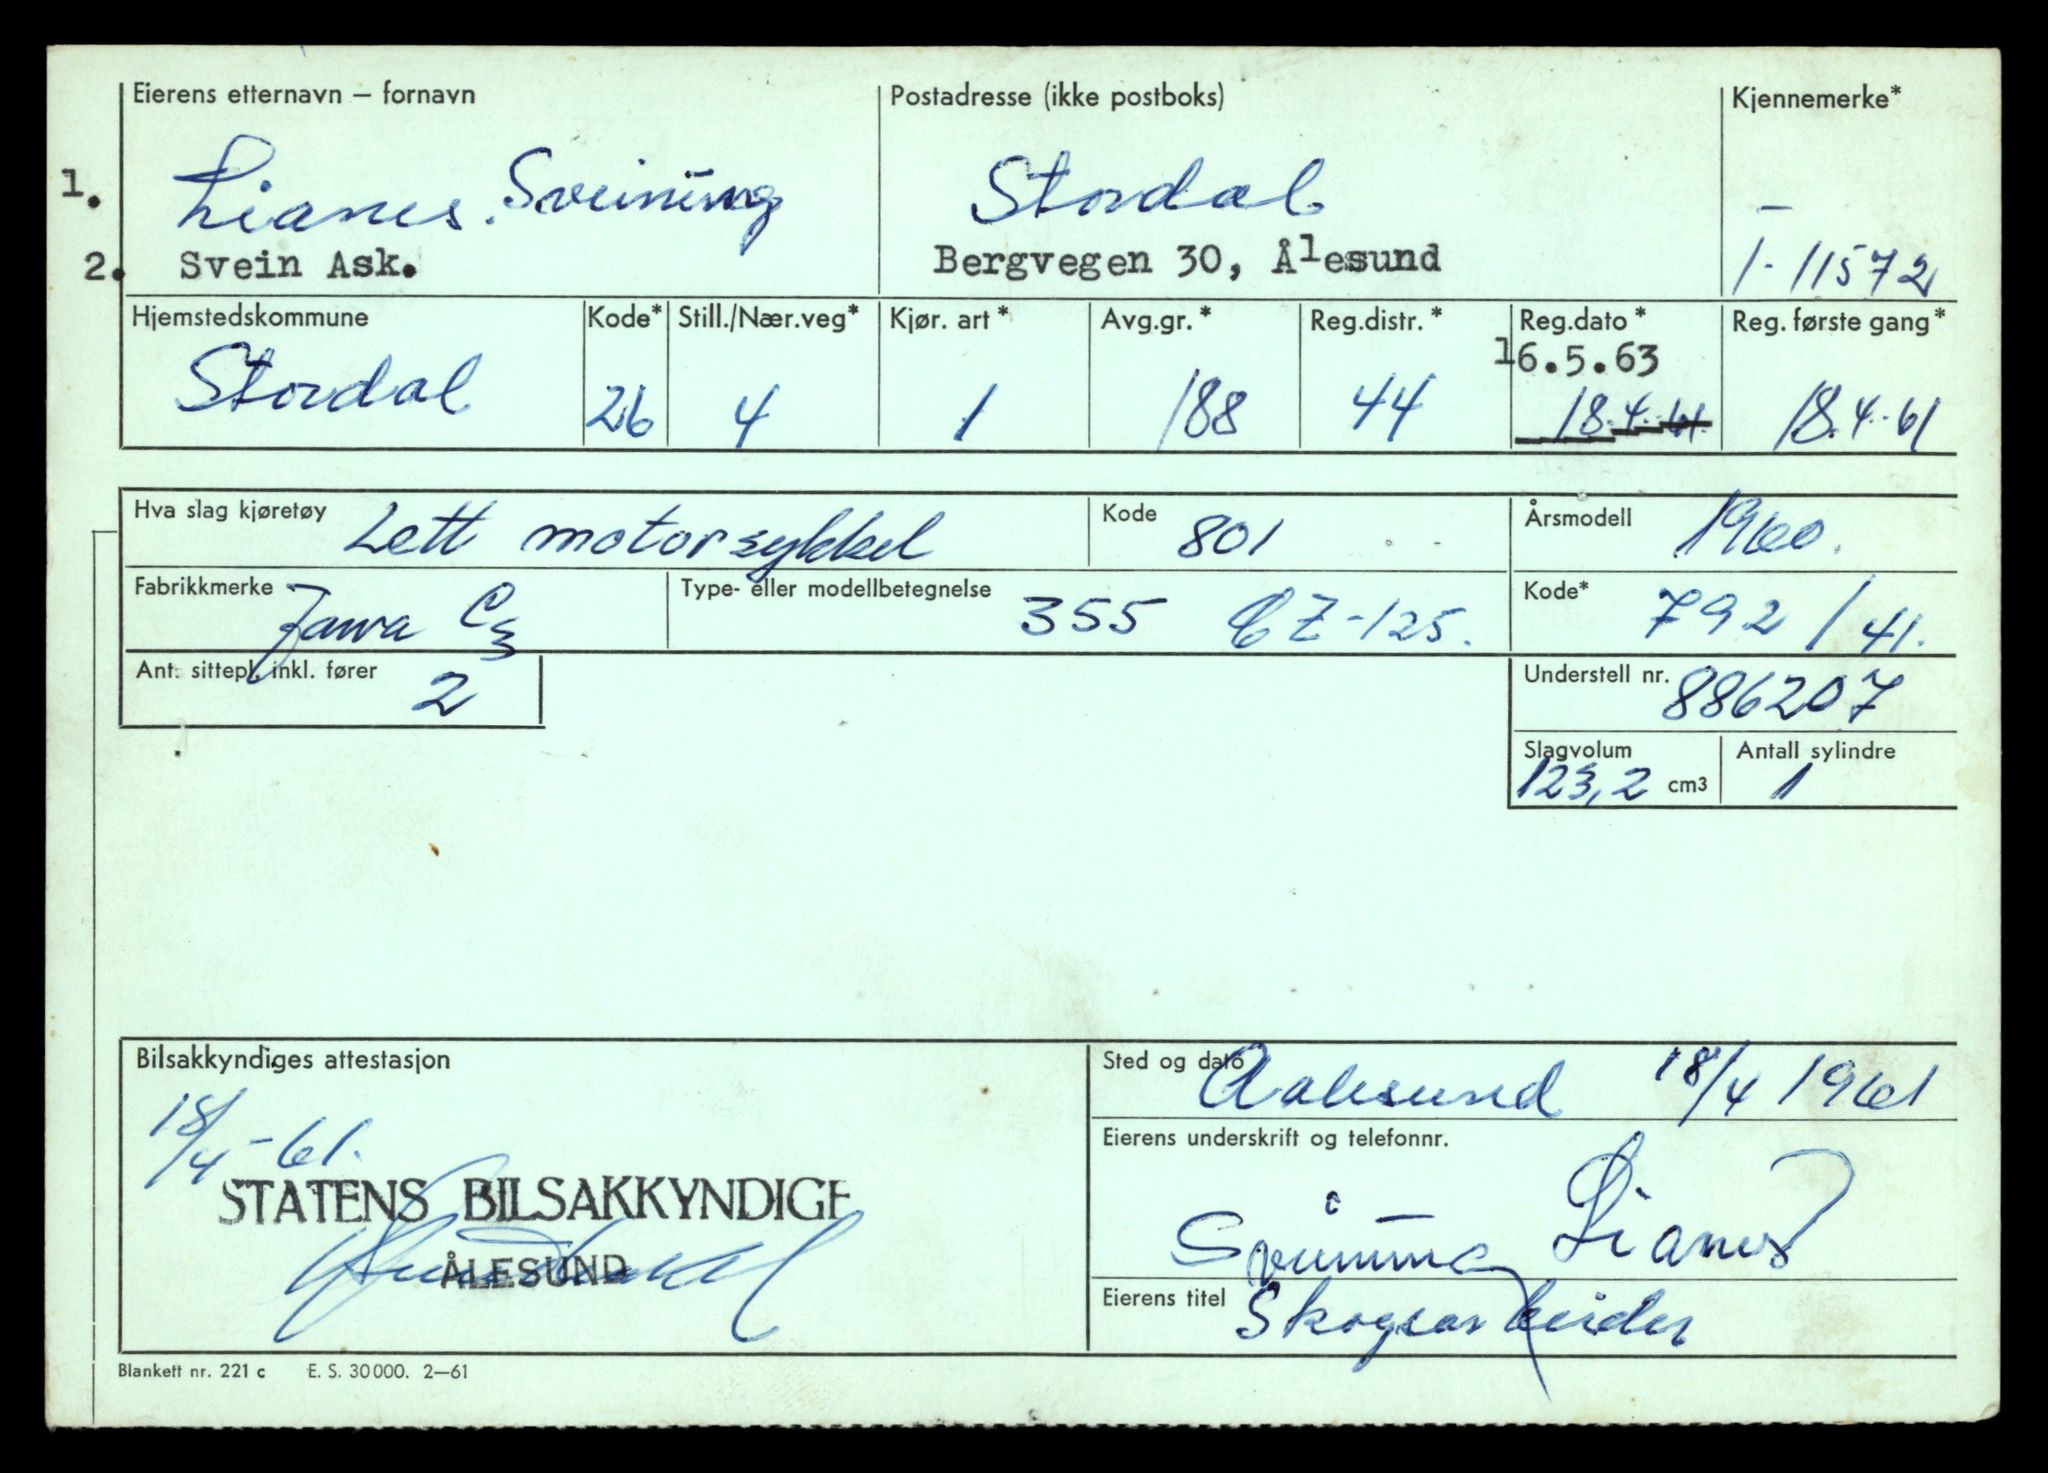 Eierens etternavn – fornavn
Postadresse (ikke postboks)
Kjennemerke*
1. Lianes, Sveinung
Stordal
2. Svein Ask.
Bergvegen 30, Ålesund
1-11572
Hjemstedskommune
Kode*
Still./Nær.veg*
Kjør. art*
Avg.gr.*
Reg.distr.*
Reg.dato*
Reg. første gang*
16.5.63
Stordal
26
4
1
188
44
18.4.61.
18.4.61
Hva slag kjøretøy Lett motorsykkel
Kode 801
Årsmodell 1960.
Fabrikkmerke Jawa Cz
Type- eller modellbetegnelse 355 CZ-125.
Kode* 792/41.
Ant. sittepl. inkl. fører 2
Understell nr. 886207
Slagvolum 123,2 cm3
Antall sylindre 1
Bilsakkyndiges attestasjon
Sted og dato Aalesund 18/4 1961
18/4-61.
STATENS BILSAKKYNDIGE
ÅLESUND
Eierens underskrift og telefonnr.
Sveinung Lianes
Eierens titel Skogsarbeider
Blankett nr. 221 c E. S. 30000. 2–61